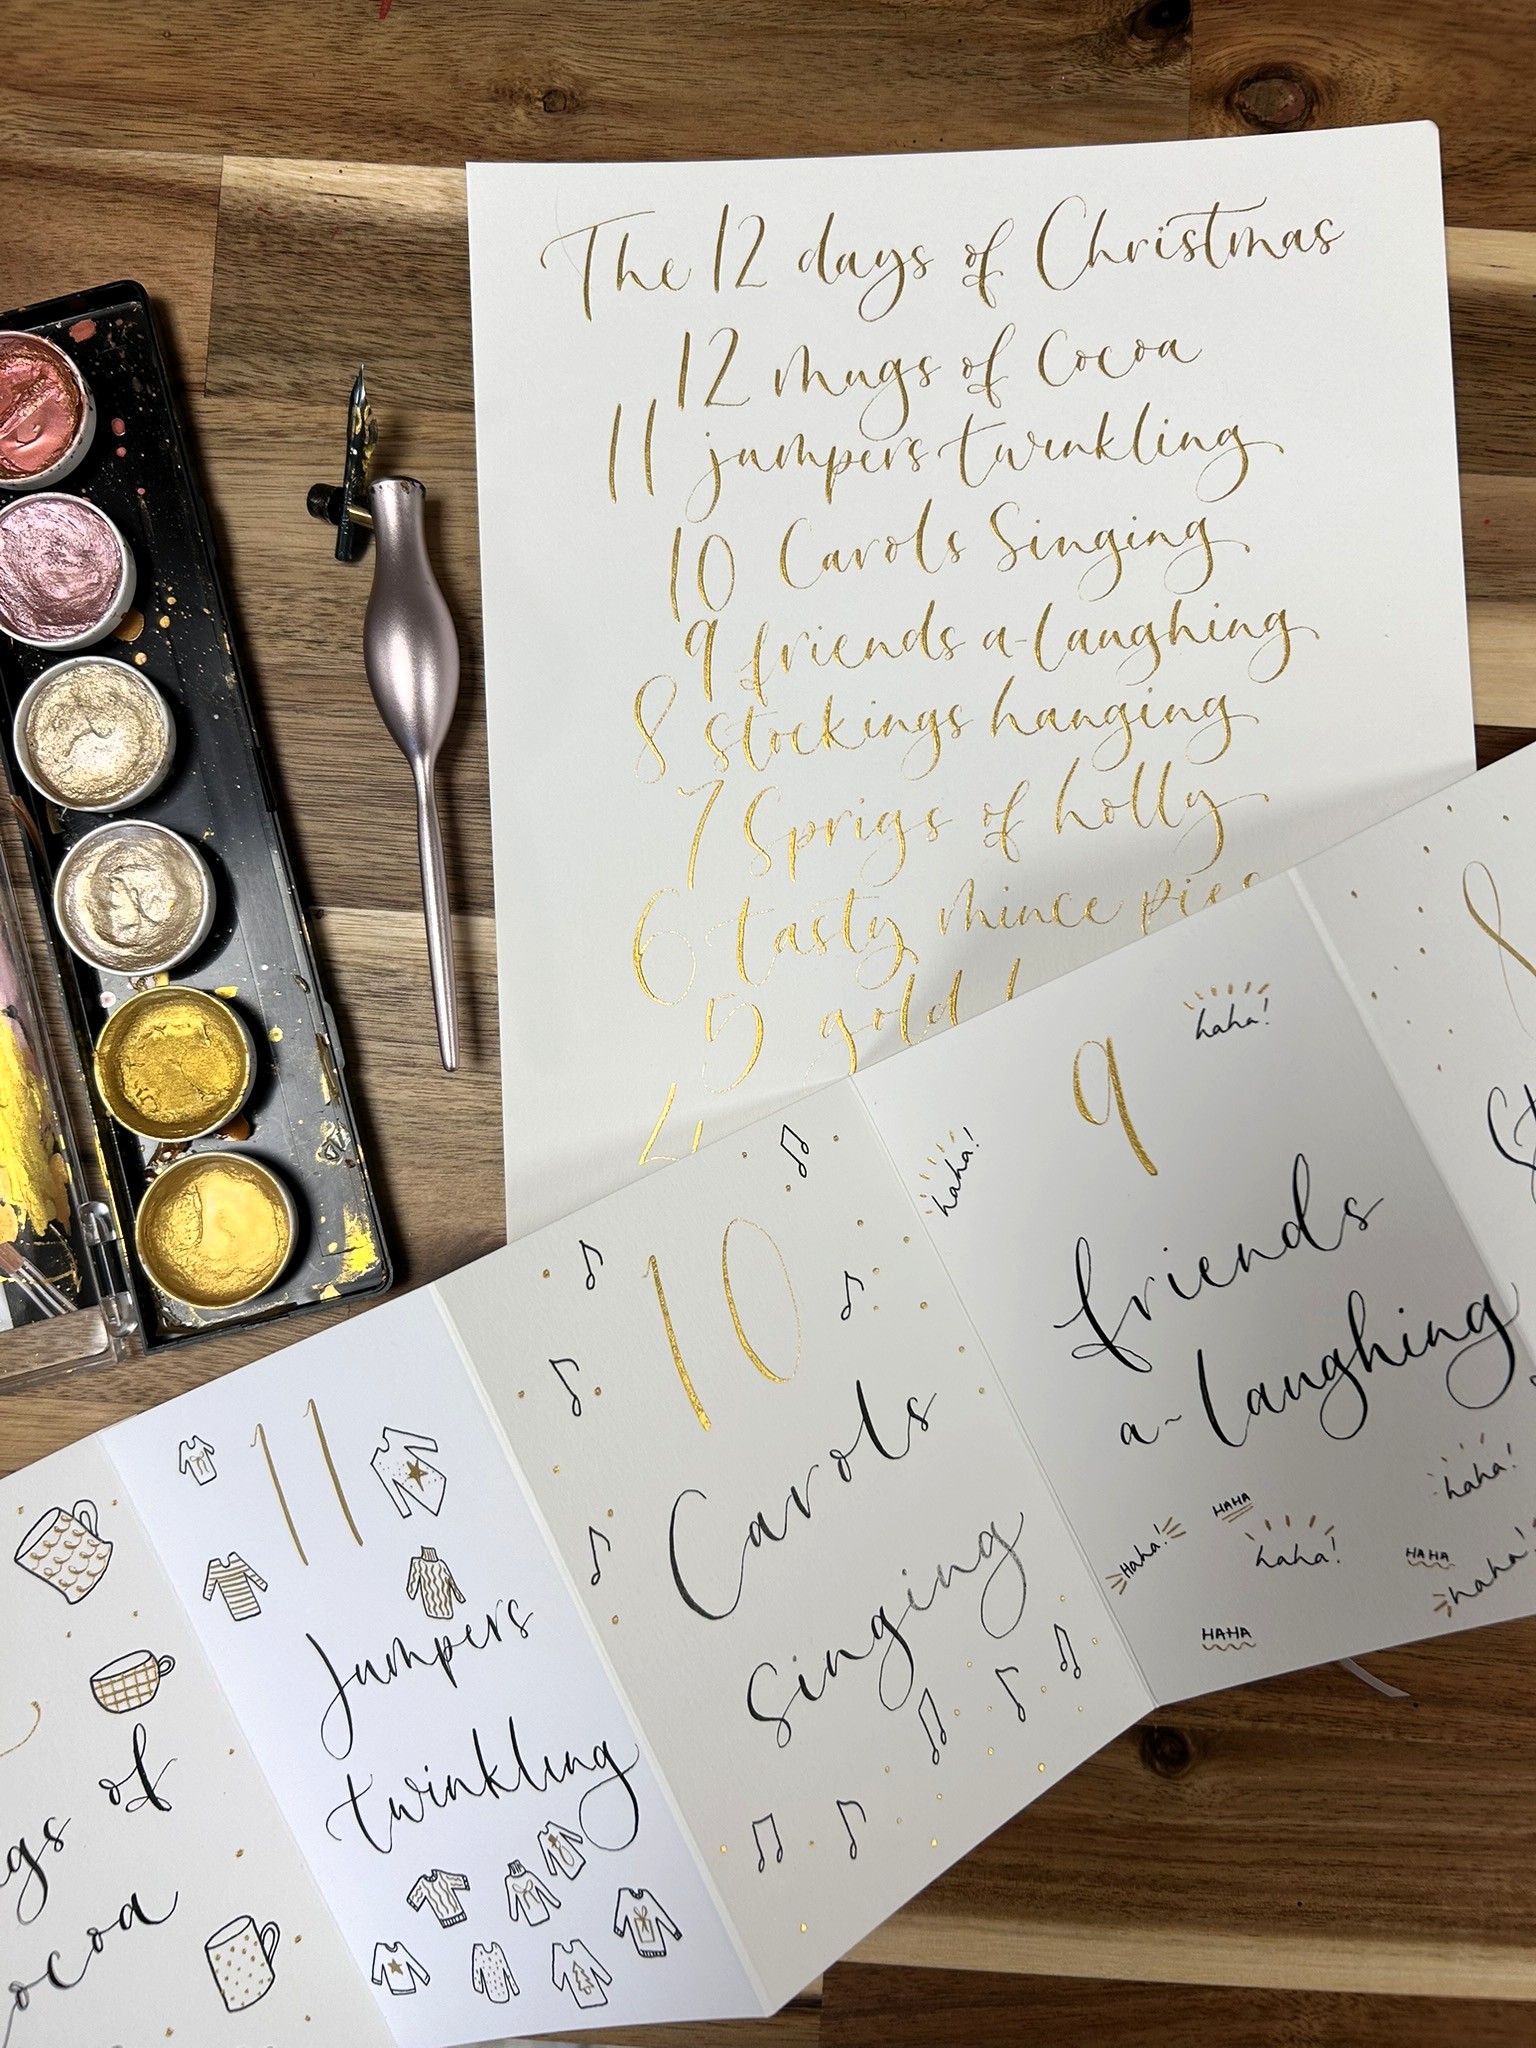 The 12 days of Christmas
12 mugs of cocoa
11 jumpers twinkling
10 Carols Singing
9 friends a-laughing
8 stockings hanging
7 Sprigs of holly
6 tasty mince pies
5 gold
of
cocoa
11
Jumpers
twinkling
10
Carols
singing
haha!
haha!
9
friends
a-laughing
haha!
HAHA
Haha!
haha!
HAHA
haha!
HAHA
8